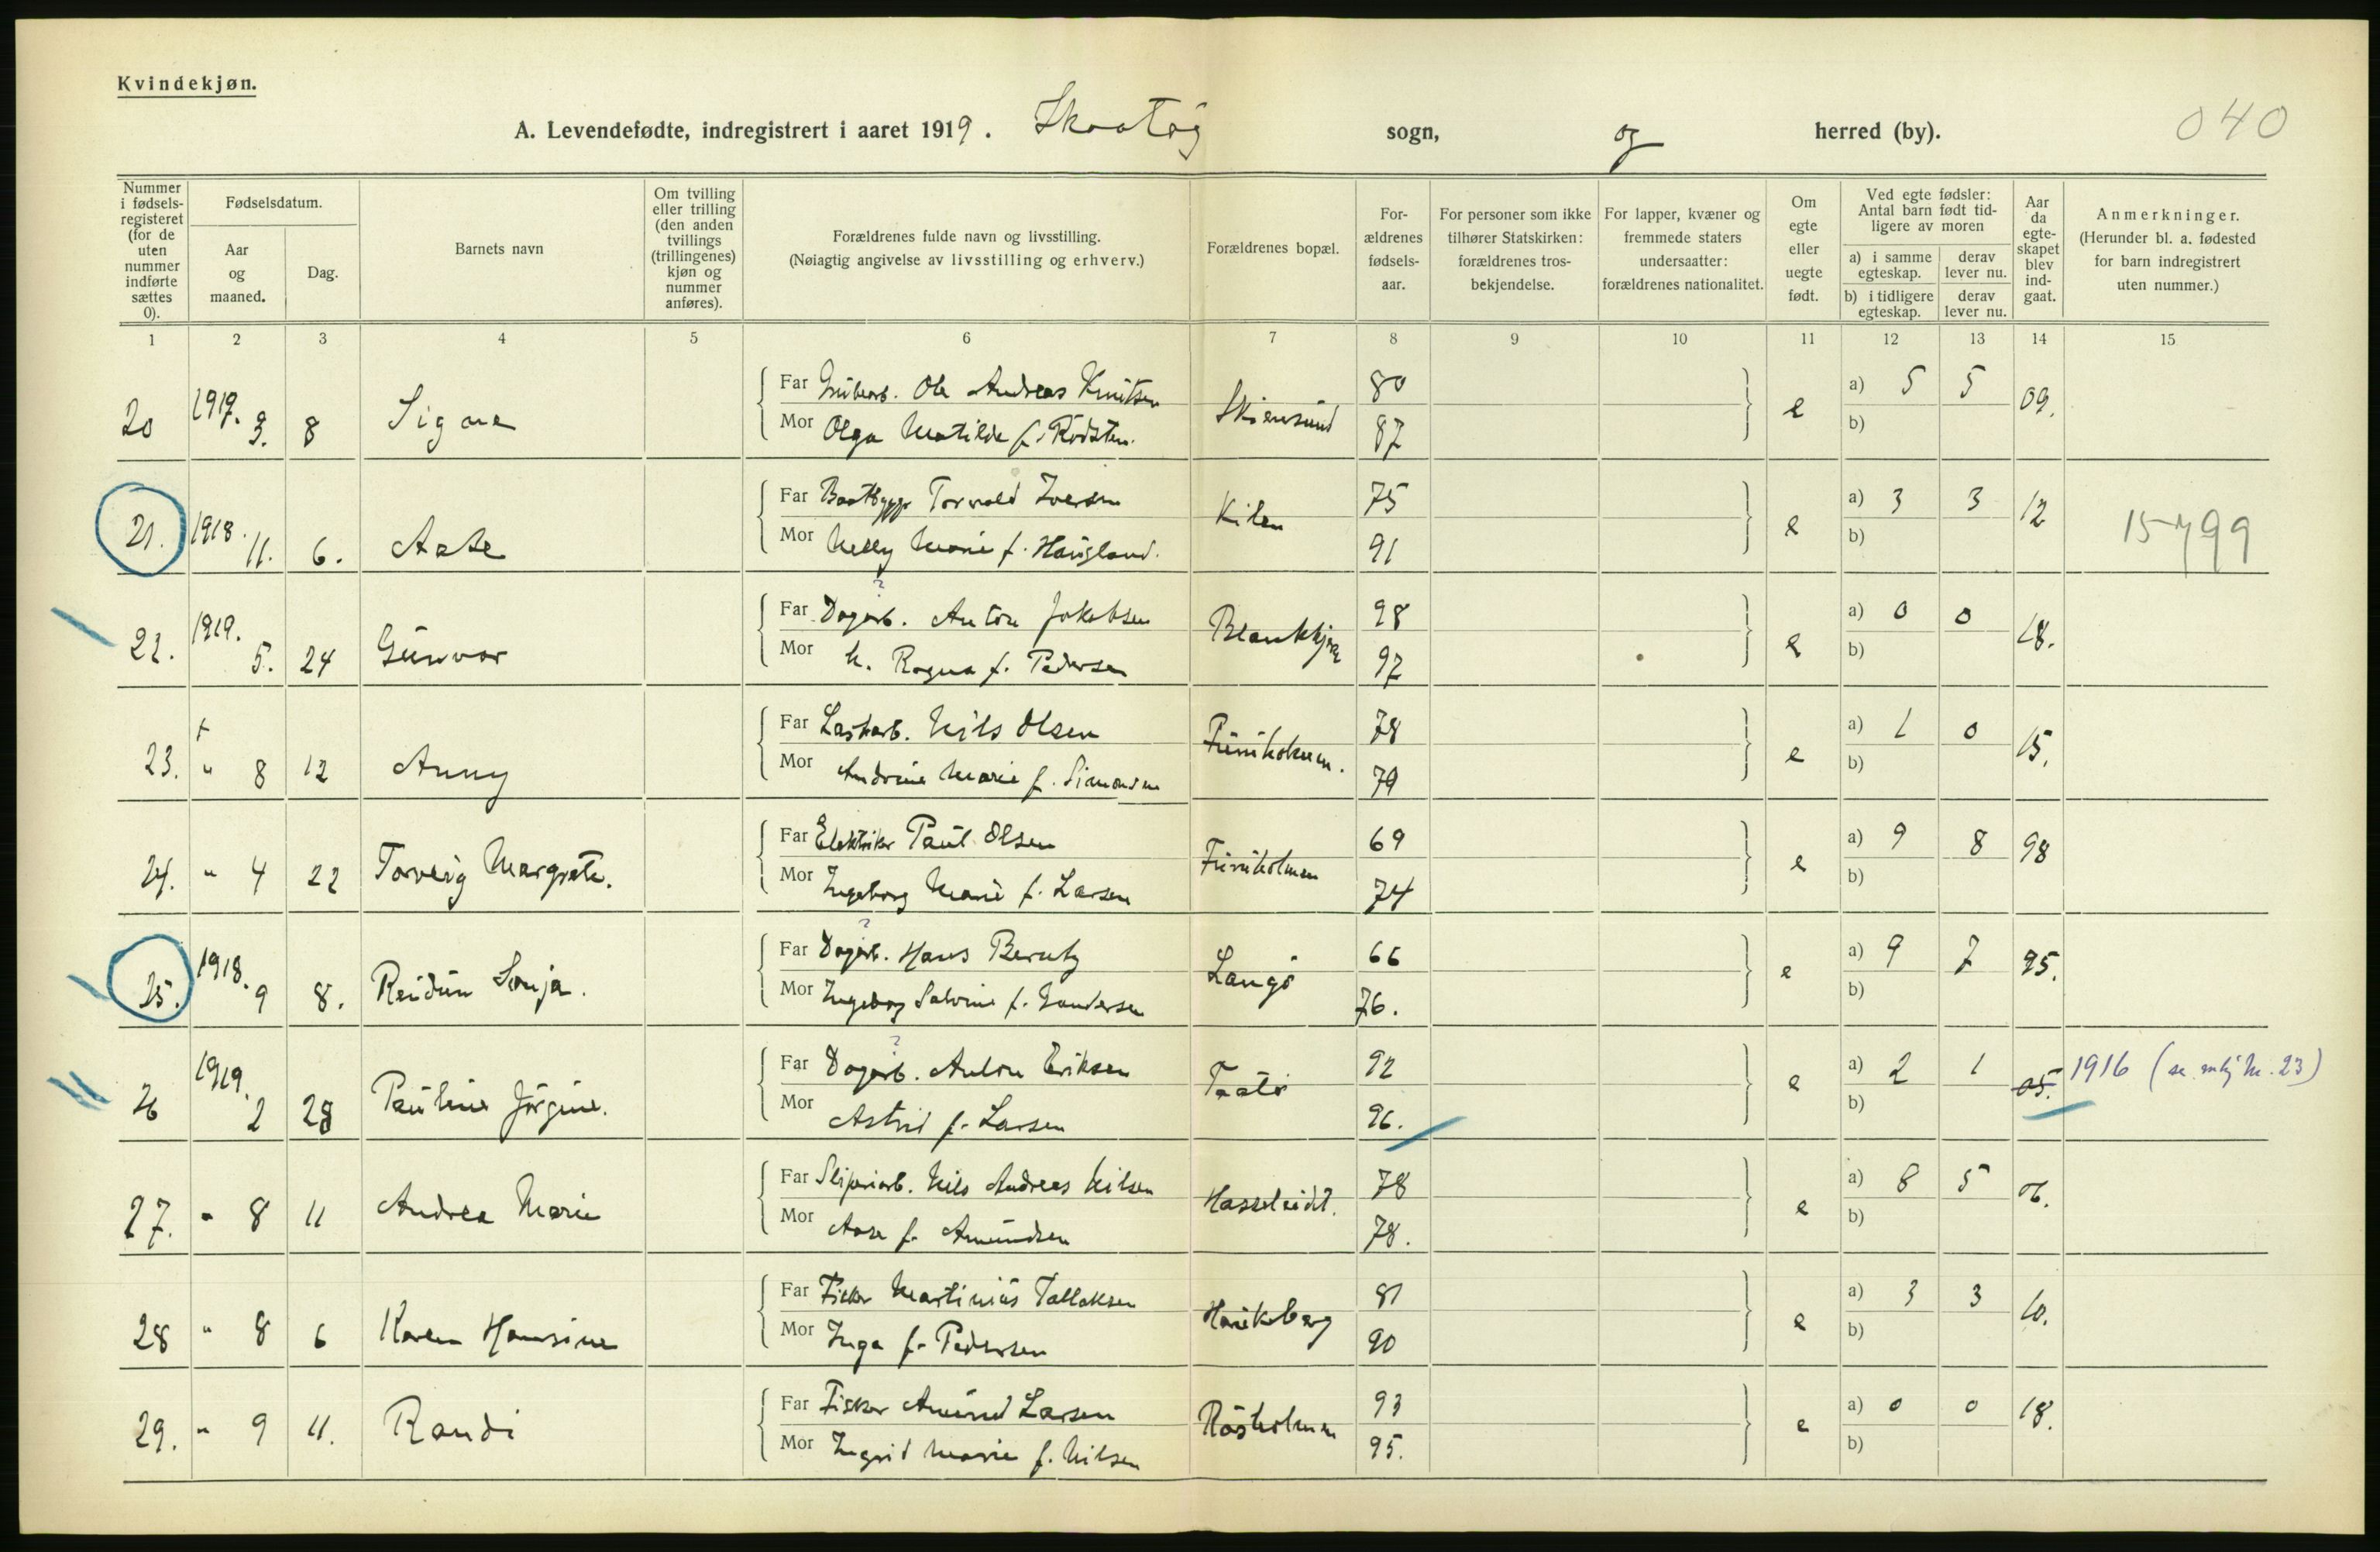 Kvindekjøn.
A. Levendefødte, indregistrert i aaret 1919. Skaatøy sogn, og herred (by). 040
Nummer i fødselsregisteret (for de uten nummer indførte sættes 0).
Fødselsdatum.
Aar og maaned.
Dag.
Barnets navn
Om tvilling eller trilling (den anden tvillings (trillingenes) kjøn og nummer anføres).
Forældrenes fulde navn og livsstilling.
(Nøiagtig angivelse av livsstilling og erhverv.)
Forældrenes bopæl.
Forældrenes fødselsaar.
For personer som ikke tilhører Statskirken: forældrenes trosbekjendelse.
For lapper, kvæner og fremmede staters undersaatter: forældrenes nationalitet.
Om egte eller uegte født.
Ved egte fødsler: Antal barn født tidligere av moren
a) i samme egteskap. derav lever nu.
b) i tidligere egteskap. derav lever nu.
Aar da egteskapet blev indgaat.
Anmerkninger.
(Herunder bl. a. fødested for barn indregistrert uten nummer.)
1 2 3 4 5 6 7 8 9 10 11 12 13 14 15
20 1919. 3. 8 Signe
Far Grubearb. Ole Andreas Knutsen 80
Mor Olga Matilde f. Rödsten. 87
Skiensund e a) 5 5 09.
b)
21. 1918. 11. 6. Aase
Far Baatbygger Torvald Iversen 75
Mor Nelly Marie f. Haugland. 91
Kilen e a) 3 3 12 15799
b)
22. 1919. 5. 24 Gunvor
Far Dagarb. Anton Jakobsen 98
Mor M. Ragna f. Pedersen 97
e a) 0 0 18.
b)
23. " 8 12 Anny
Far Lastearb. Nils Olsen 78
Mor Andrine Marie f. Simonsen 79
Furuholmen. e a) 1 0 15.
b)
24. " 4 22 Torveig Margrete.
Far Elektriker Paul Olsen 69
Mor Ingeborg Marie f. Larsen 74
Furuholmen e a) 9 8 98
b)
25. 1918. 9 8. Reidun Sonja.
Far Dagarb. Hans Berntz 66
Mor Ingeborg Salvine f. Gundersen 76.
Langö e a) 9 7 95.
b)
26 1919. 2 28 Pauline Jörgine.
Far Dagarb. Anton Eriksen 92
Mor Astrid f. Larsen 96.
Taatö e a) 2 1 05. 1916 (se nr. 23)
b)
27. " 8 11 Andrea Marie
Far Sliperiarb. Nils Andreas Nilsen 78
Mor Aase f. Amundsen 78.
e a) 8 5 06.
b)
28 " 8 6 Karen Hansine
Far Fisker Martinius Tallaksen 81
Mor Inga f. Pedersen 90
Haukeberg e a) 3 3 10.
b)
29. " 9 11. Randi
Far Fisker Amund Larsen 93
Mor Ingrid Marie f. Nilsen 95.
Rösholmen e a) 0 0 18.
b)